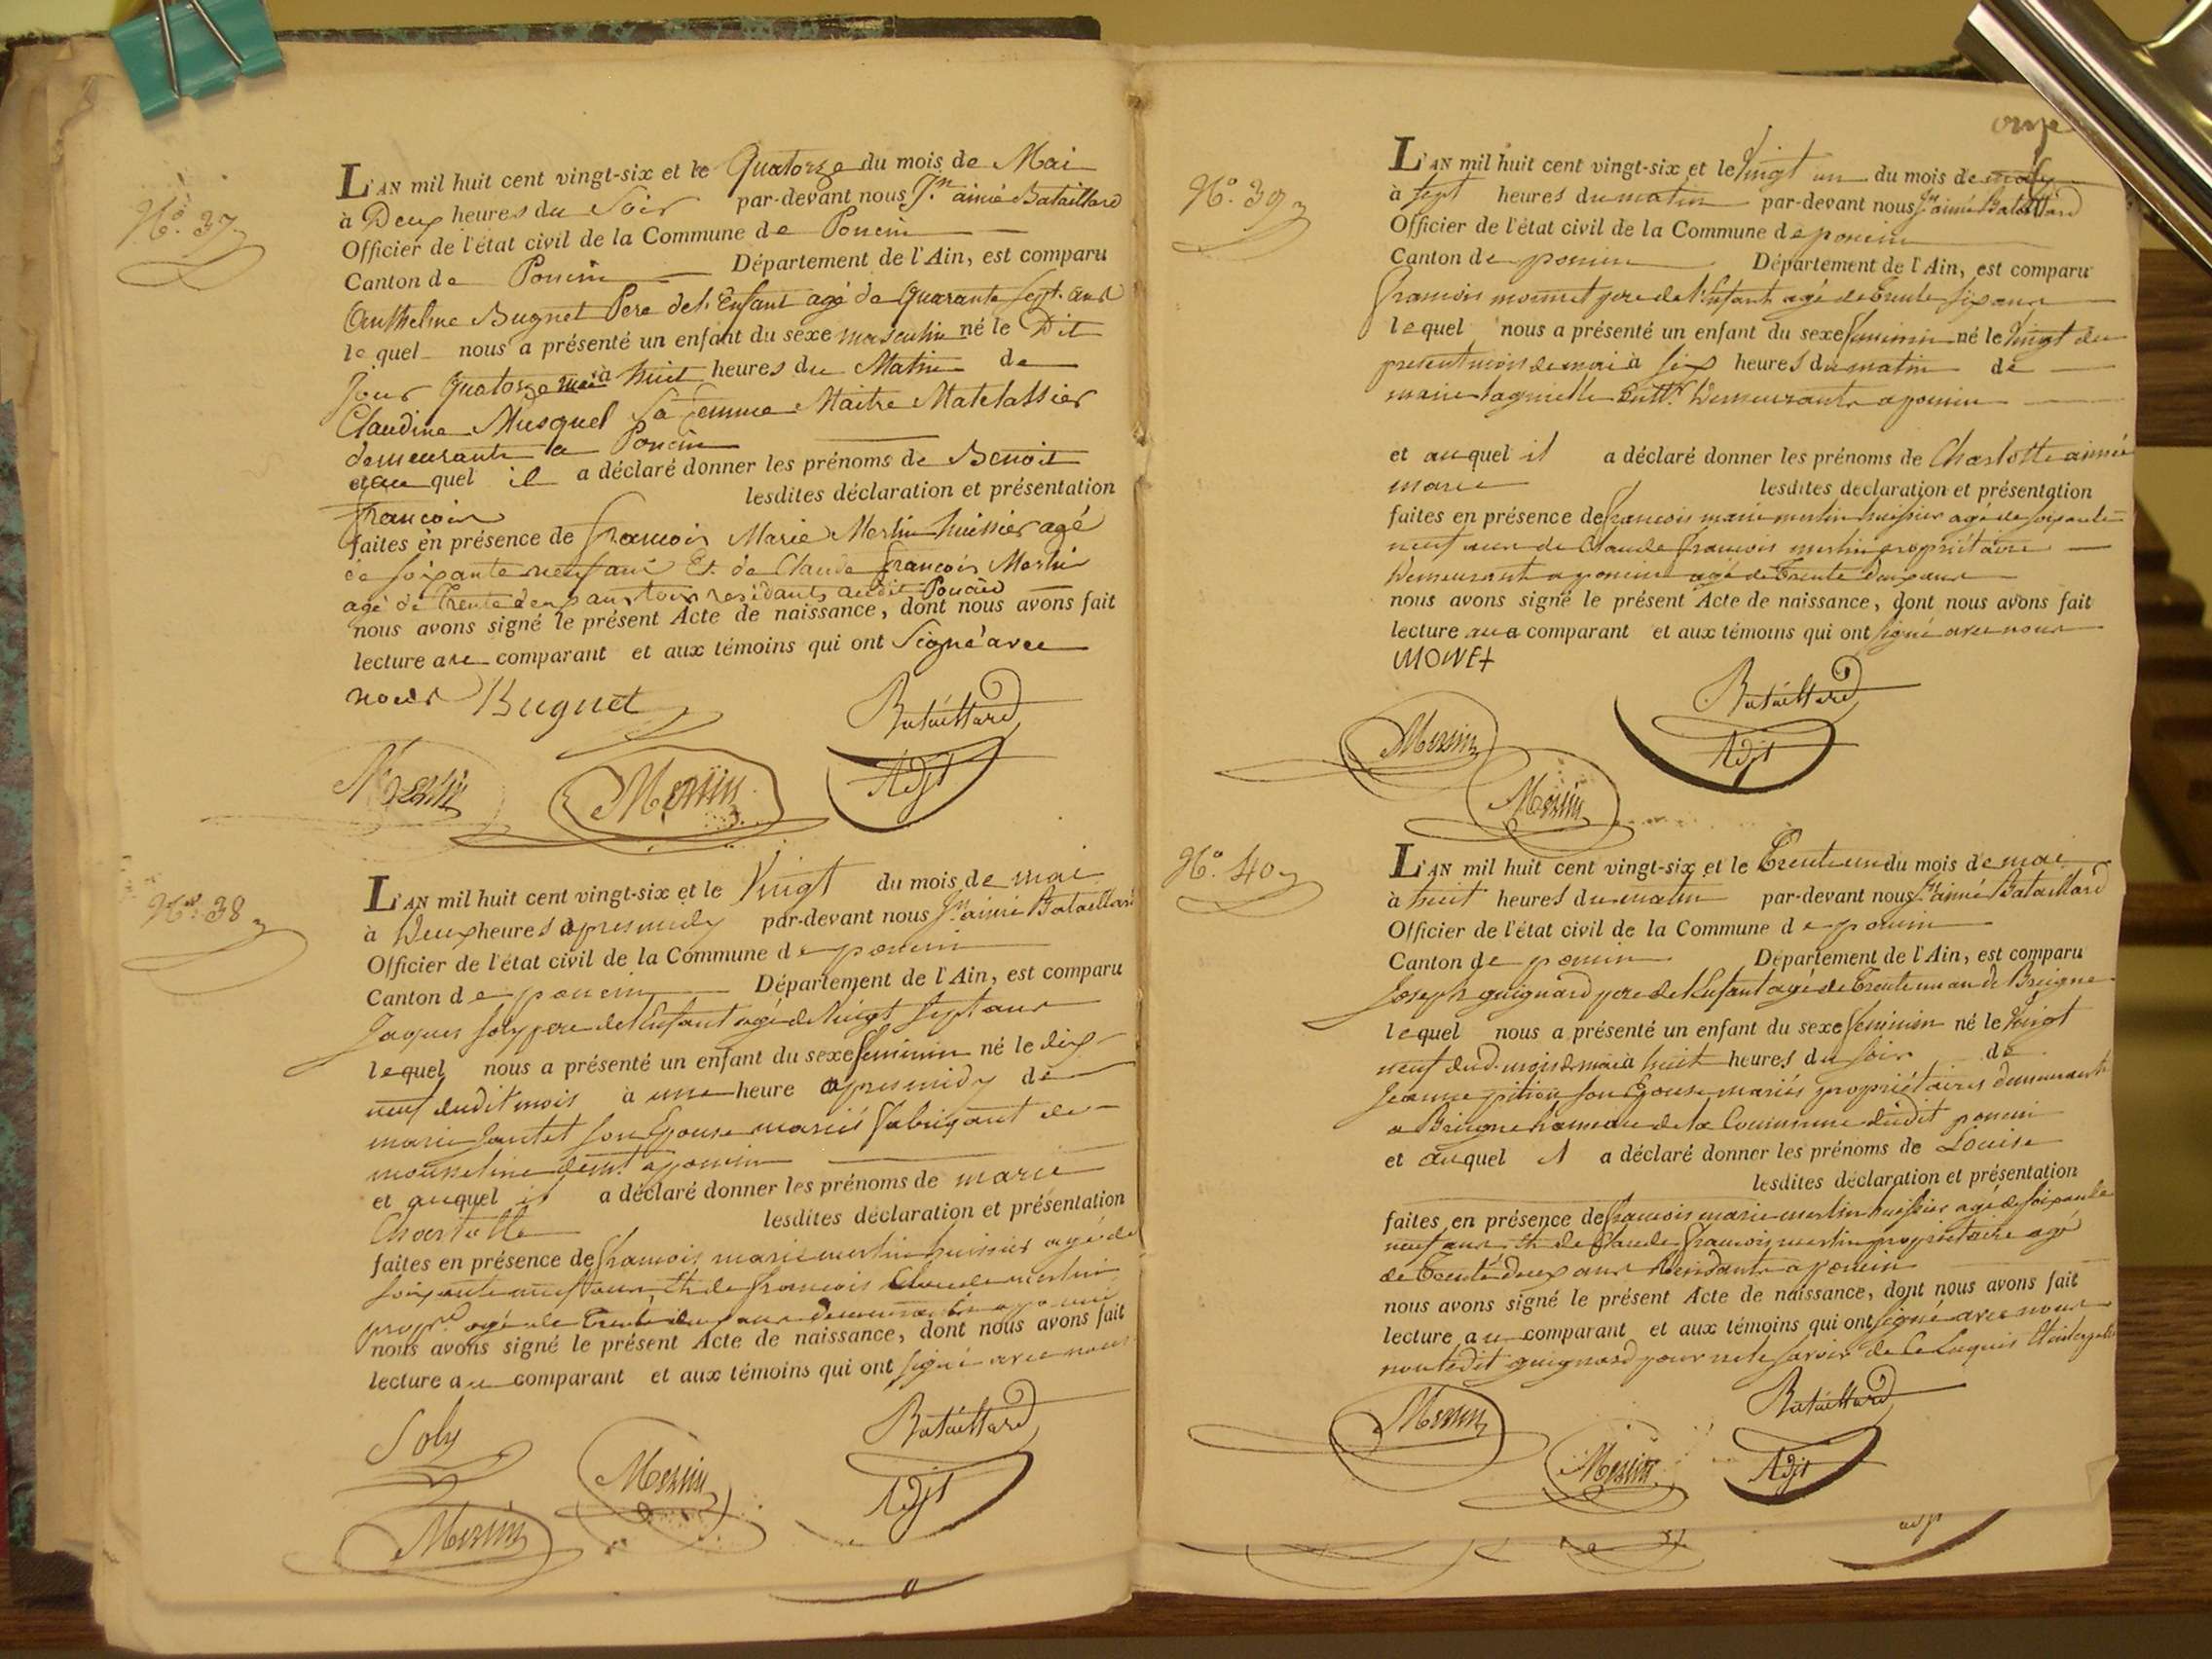 N.o 37
L'AN mil huit cent vingt-six et le Quatorze du mois de Mai
à Deux heures du Soir par-devant nous J.n aimé Bataillard
Officier de l'état civil de la Commune de Poncin
Canton de Poncin Département de l'Ain, est comparu
Anthelme Bugnet Pere de l'Enfant agé de Quarante Sept ans
lequel nous a présenté un enfant du sexe masculin né le Dit
Jour Quatorze mai à huit heures du Matin de
Claudine Musquel Sa femme Maitre Matelassier
demeurants a Poncin
et au quel il a déclaré donner les prénoms de Benoit
francois lesdites déclaration et présentation
faites en présence de francois Marie Merlin huissier agé
de soixante neuf ans Et de Claude françois Merlin
agé de trente deux ans tous residants audit Poncin
nous avons signé le présent Acte de naissance, dont nous avons fait
lecture au comparant et aux témoins qui ont Signé avec
nous Bugnet
Bataillard
Merlin Merlin Adjt
N.o 38
L'AN mil huit cent vingt-six et le Vingt du mois de mai
à Deux heures apres midy par-devant nous J.n aimé Bataillard
Officier de l'état civil de la Commune de poncin
Canton de poncin Département de l'Ain, est comparu
Jaques Soly pere de l'Enfant agé de Vingt Sept ans
lequel nous a présenté un enfant du sexe feminin né le dix
neuf dudit mois à une heure apres midy de
marie son Epouse mariés fabriquant de
mousseline demt a poncin
et auquel il a déclaré donner les prénoms de marie
Charlotte lesdites déclaration et présentation
faites en présence de francois marie merlin huissier agé de
soixante neuf ans et de francois Claude merlin
propre agé de trente deux ans demeurants a poncin
nous avons signé le présent Acte de naissance, dont nous avons fait
lecture au comparant et aux témoins qui ont signé avec nous
Soly Bataillard
Merlin Merlin Adjt
onze
N.o 39
L'AN mil huit cent vingt-six et le Vingt un du mois de may
à sept heures du matin par-devant nous Jn aimé Bataillard
Officier de l'état civil de la Commune de poncin
Canton de poncin Département de l'Ain, est comparu
francois monnet pere de l'Enfant agé de trente six ans
lequel nous a présenté un enfant du sexe feminin né le Vingt du
present mois de mai à six heures du matin de
marie Demeurants a poncin
et auquel il a déclaré donner les prénoms de Charlotte aimée
marie lesdites déclaration et présentation
faites en présence de francois marie merlin huissier agé de soixante
neuf ans de Claude francois merlin propriétaire
Demeurant a poncin agé de trente deux ans
nous avons signé le présent Acte de naissance, dont nous avons fait
lecture au comparant et aux témoins qui ont signé avec nous
MONEt
Bataillard
Merlin Adjt
Merlin
N.o 40
L'AN mil huit cent vingt-six et le trente un du mois de mai
à huit heures du matin par-devant nous Jn aimé Bataillard
Officier de l'état civil de la Commune de poncin
Canton de poncin Département de l'Ain, est comparu
Joseph guignard pere de l'Enfant agé de trente un an de Breigne
lequel nous a présenté un enfant du sexe feminin né le Vingt
neuf dud. mois de mai à huit heures du soir de
Jeanne son Epouse mariés propriétaires demeurants
a Breigne hameau de la Commune dudit poncin
et auquel il a déclaré donner les prénoms de Louise
lesdites déclaration et présentation
faites en présence de francois marie merlin huissier agé de soixante
neuf ans et de Claude francois merlin propriétaire agé
de trente deux ans Residants a poncin
nous avons signé le présent Acte de naissance, dont nous avons fait
lecture au comparant et aux témoins qui ont signé avec nous
non ledit guignard pour ne le savoir de Ce Requis Et interpellé
Merlin Bataillard
Merlin Adjt